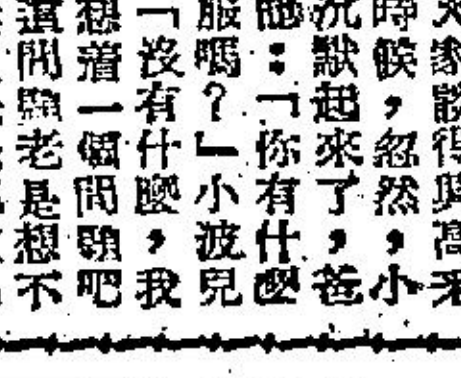 大家談得興高采
時候，忽然，小
沉默起來了，爸
他：「你有什麼
服嗎？」小波兒
「沒有什麼，我
想着一個問題吧
這問題老是想不